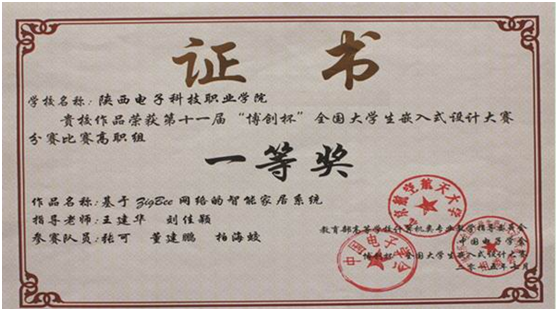 证书
学校名称：陕西电子科技职业学院
贵校作品荣获第十一届“博创杯”全国大学生嵌入式设计大赛
分赛比赛高职组
一等奖
作品名称：基于ZigBee网络的智能家居系统
指导老师：王建华 刘佳颖
参赛队员：张可 董建鹏 柏海蛟
教育部高等学校计算机类专业教学指导委员会
中国电子学会
博创杯 全国大学生嵌入式设计大赛
二〇一五年七月
航空航天大学
中国电子学会